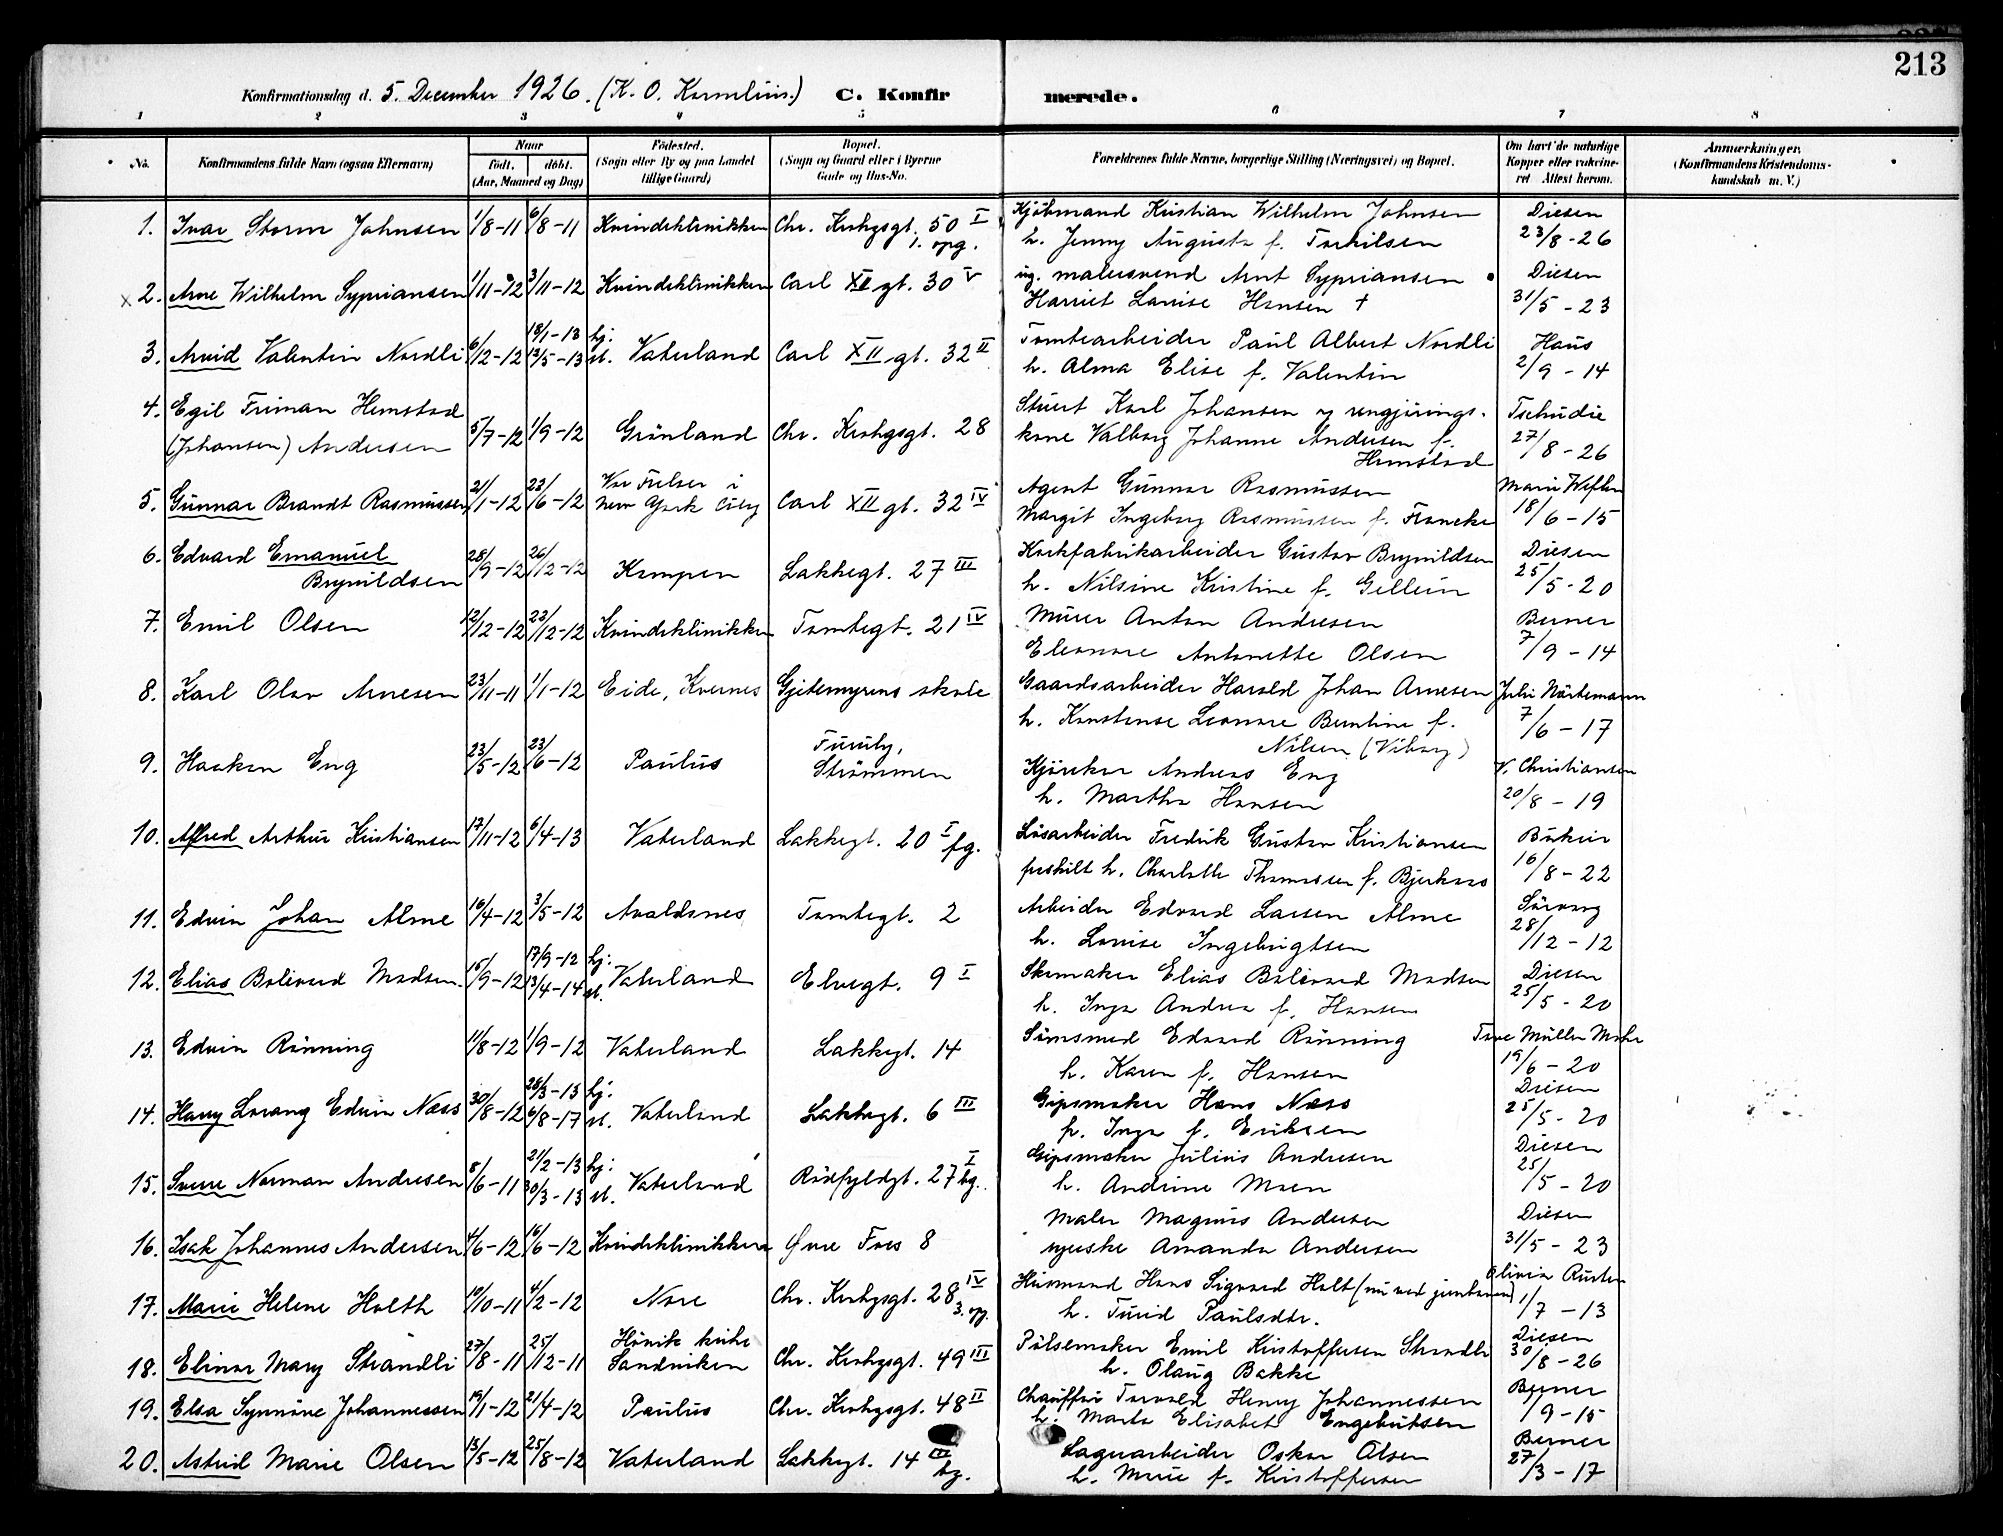 213
Konfirmationsdag d. 5. December 1926. (K. O. Kornelius.) C. Konfirmerede.
1 2 3 4 5 6 7 8
No. Konfirmandens fulde Navn (ogsaa Efternavn) Naar født, døbt. (Aar, Maaned og Dag) Fødested. (Sogn eller By og paa Landet tillige Gaard) Bopæl. (Sogn og Gaard eller i Byerne Gade og Hus-No. Forældrenes fulde Navne, borgerlige Stilling (Næringsvei) og Bopæl. Om havt de naturlige Kopper eller vakcineret Attest herom. Anmærkninger. (Konfirmandens Kristendomskundskab m. V.)
1. Ivar Storm Johnsen 1/8-11 6/8-11 Kvindeklinikken Chr. Krohgsgt. 50 I 1. opg. Kjøbmand Kristian Wilhelm Johnsen Diesen
h. Jenny Augusta f. Torkilsen 23/8-26
x 2. Arne Wilhelm Sypriansen 1/11-12 3/11-12 Kvindeklinikken Carl XII gt. 30 V ug. malersvend Arnt Sypriansen Diesen
Harriet Lovise Hansen † 31/5-23
3. Arvid Valentin Nordli 6/12-12 18/1-13 hj: 13/5-13 st. Vaterland Carl XII gt. 32 II Tomtearbeider Paul Albert Nordli Haus
h. Alma Elise f. Valentin 2/9-14
4. Egil Friman Hemstad Stuert Karl Johansen og rengjørings- Tschudie
(Johansen) Andersen 5/7-12 1/9-12 Grønland Chr. Krohgsgt. 28 kone Valborg Johanne Andersen f. Hemstad 27/8-26
5. Gunnar Brandt Rasmussen 21/1-12 23/6-12 Vor Frelser i New York City Carl XII gt. 32 IV Agent Gunnar Rasmussen Marie
Margit Ingeborg Rasmussen f. Francke 18/6-15
6. Edvard Emanuel Brynildsen 28/9-12 26/12-12 Kampen Lakkegt. 27 III Korkfabrikarbeider Gustav Brynildsen Diesen
h. Nilsine Kristine f. Gellein 25/5-20
7. Emil Olsen 12/12-12 23/12-12 Kvindeklinikken Tomtegt. 21 IV Murer Anton Andresen Berner
Eleonore Antonette Olsen 7/9-14
8. Karl Olav Arnesen 23/11-11 1/1-12 Eide, Kvernes Gjetemyrens skole Gaardsarbeider Harald Johan Arnesen
h. Konstanse Leonore Berntine f. Nilsen (Viborg) 7/6-17
9. Haakon Eng 23/5-12 23/6-12 Paulus Furuly, Strømmen Kjørekar Andreas Eng V. Christiansen
h. Martha Hansen 20/8-19
10. Alfred Arthur Kristiansen 17/11-12 6/4-13 Vaterland Lakkegt. 20 I fg. Løsarbeider Fredrik Gustav Kristiansen
fraskilt h. Charlotte Thomassen f. Bjerkaas 16/8-22
11. Edvin Johan Alme 16/4-12 3/5-12 Avaldsnes Tomtegt. 2 Arbeider Edvard Larsen Alme
h. Lovise Ingebrigtsen 28/12-12
12. Elias Bolivard Madsen 15/9-12 17/9-12 hj: 13/4-14 st. Vaterland Elvegt. 9 I Skomaker Elias Bolivard Madsen Diesen
h. Inga Andrea f. Hansen 25/5-20
13. Edvin Rønning 11/8-12 1/9-12 Vaterland Lakkegt. 14 Sømsmed Edvard Rønning Tove Müller
h. Karen f. Hansen 19/6-20
14. Harry Lorang Edvin Næss 30/8-12 28/3-13 hj: 6/8-17 st. Vaterland Lakkegt. 6 III Gipsmaker Hans Næss Diesen
h. Inga f. Eriksen 25/5-20
15. Sverre Norman Andresen 8/6-11 21/2-13 hj: 30/3-13 st. Vaterland Rødfyldgt. 27 I bg. Gipsmaker Julius Andresen Diesen
h. Andrine Moen 25/5-20
16. Isak Johannes Andersen 4/6-12 16/6-12 Kvindeklinikken Øvre Foss 8 Maler Magnus Andersen Diesen
syerske Amanda Andersen 31/5-23
17. Marie Helene Holth 10/10-11 4/2-12 Nore Chr. Krohgsgt. 28 IV 3. op. Husmand Hans Sigvard Holt (nu ved jernbanen) Olivia Rusten
h. Turid Paulsdtr. 1/7-13
18. Elinor Mary Strandli 27/8-11 25/12-11 Høvik kirke Sandviken Chr. Krohgsgt. 49 III Pølsemaker Emil Kristoffersen Strandli Diesen
h. Olaug Bakke 30/8-26
19. Elsa Synnøve Johannessen 19/1-12 21/4-12 Paulus Chr. Krohgsgt. 48 II Chauffør Torvald Henry Johannessen Berner
h. Marta Elisabet Engebretsen 1/9-15
20. Astrid Marie Olsen 13/5-12 25/8-12 Vaterland Lakkegt. 14 III bg. Lagerarbeider Oskar Olsen Berner
h. Marie f. Kristoffersen 27/3-17